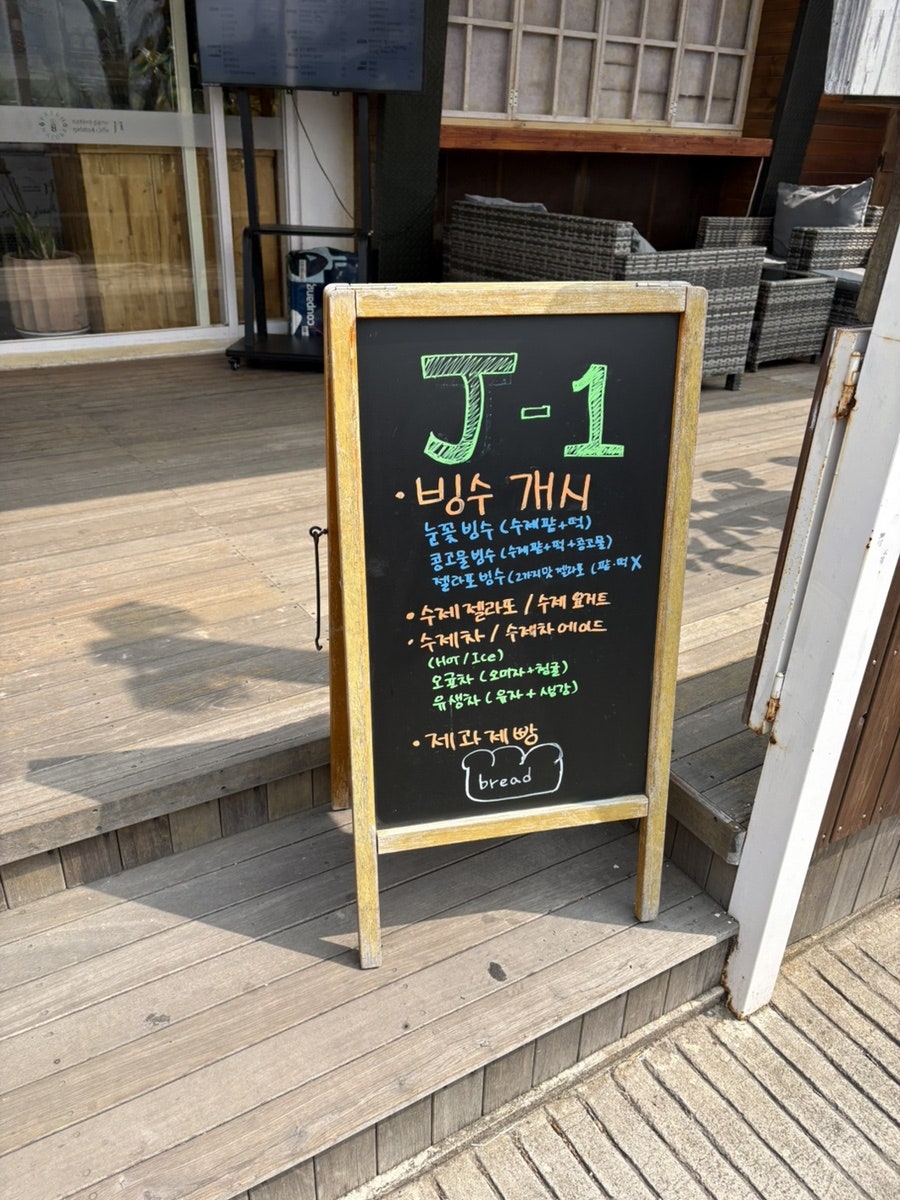 J-1
· 빙수 개시
눈꽃빙수 (수제팥+떡)
콩고물빙수 (수제팥+떡+콩고물)
젤라또빙수 (2가지맛 젤라또 (팥·떡X
· 수제 젤라또 / 수제 요거트
· 수제차 / 수제차 에이드
(HOT / Ice)
오귤차 (오미자+청귤)
유생차 (유자+생강)
· 제과제빵
bread
coupang